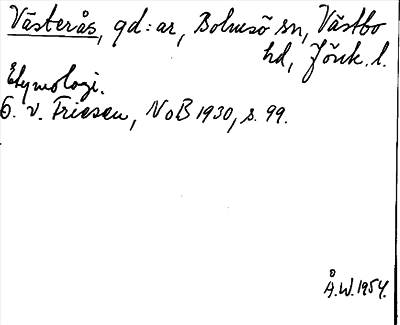 Västerås, gd:ar, Bolmsö sn, Västbo
hd, Jönk. l.
Etymologi.
O. v. Friesen, NoB 1930, s. 99.
Å.W. 1954.